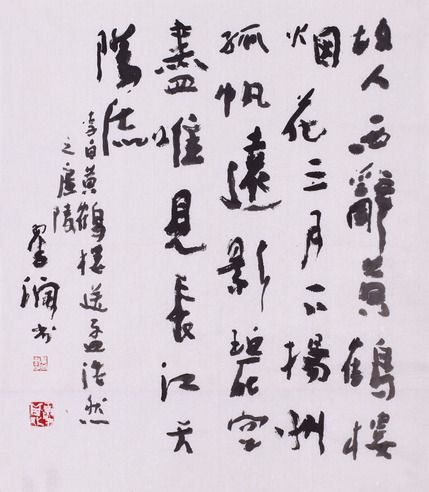 故人西辭黄鶴樓
烟花三月下揚州
孤帆遠影碧空
盡唯見長江天
際流
李白黄鶴樓送孟浩然
之廣陵
澜书